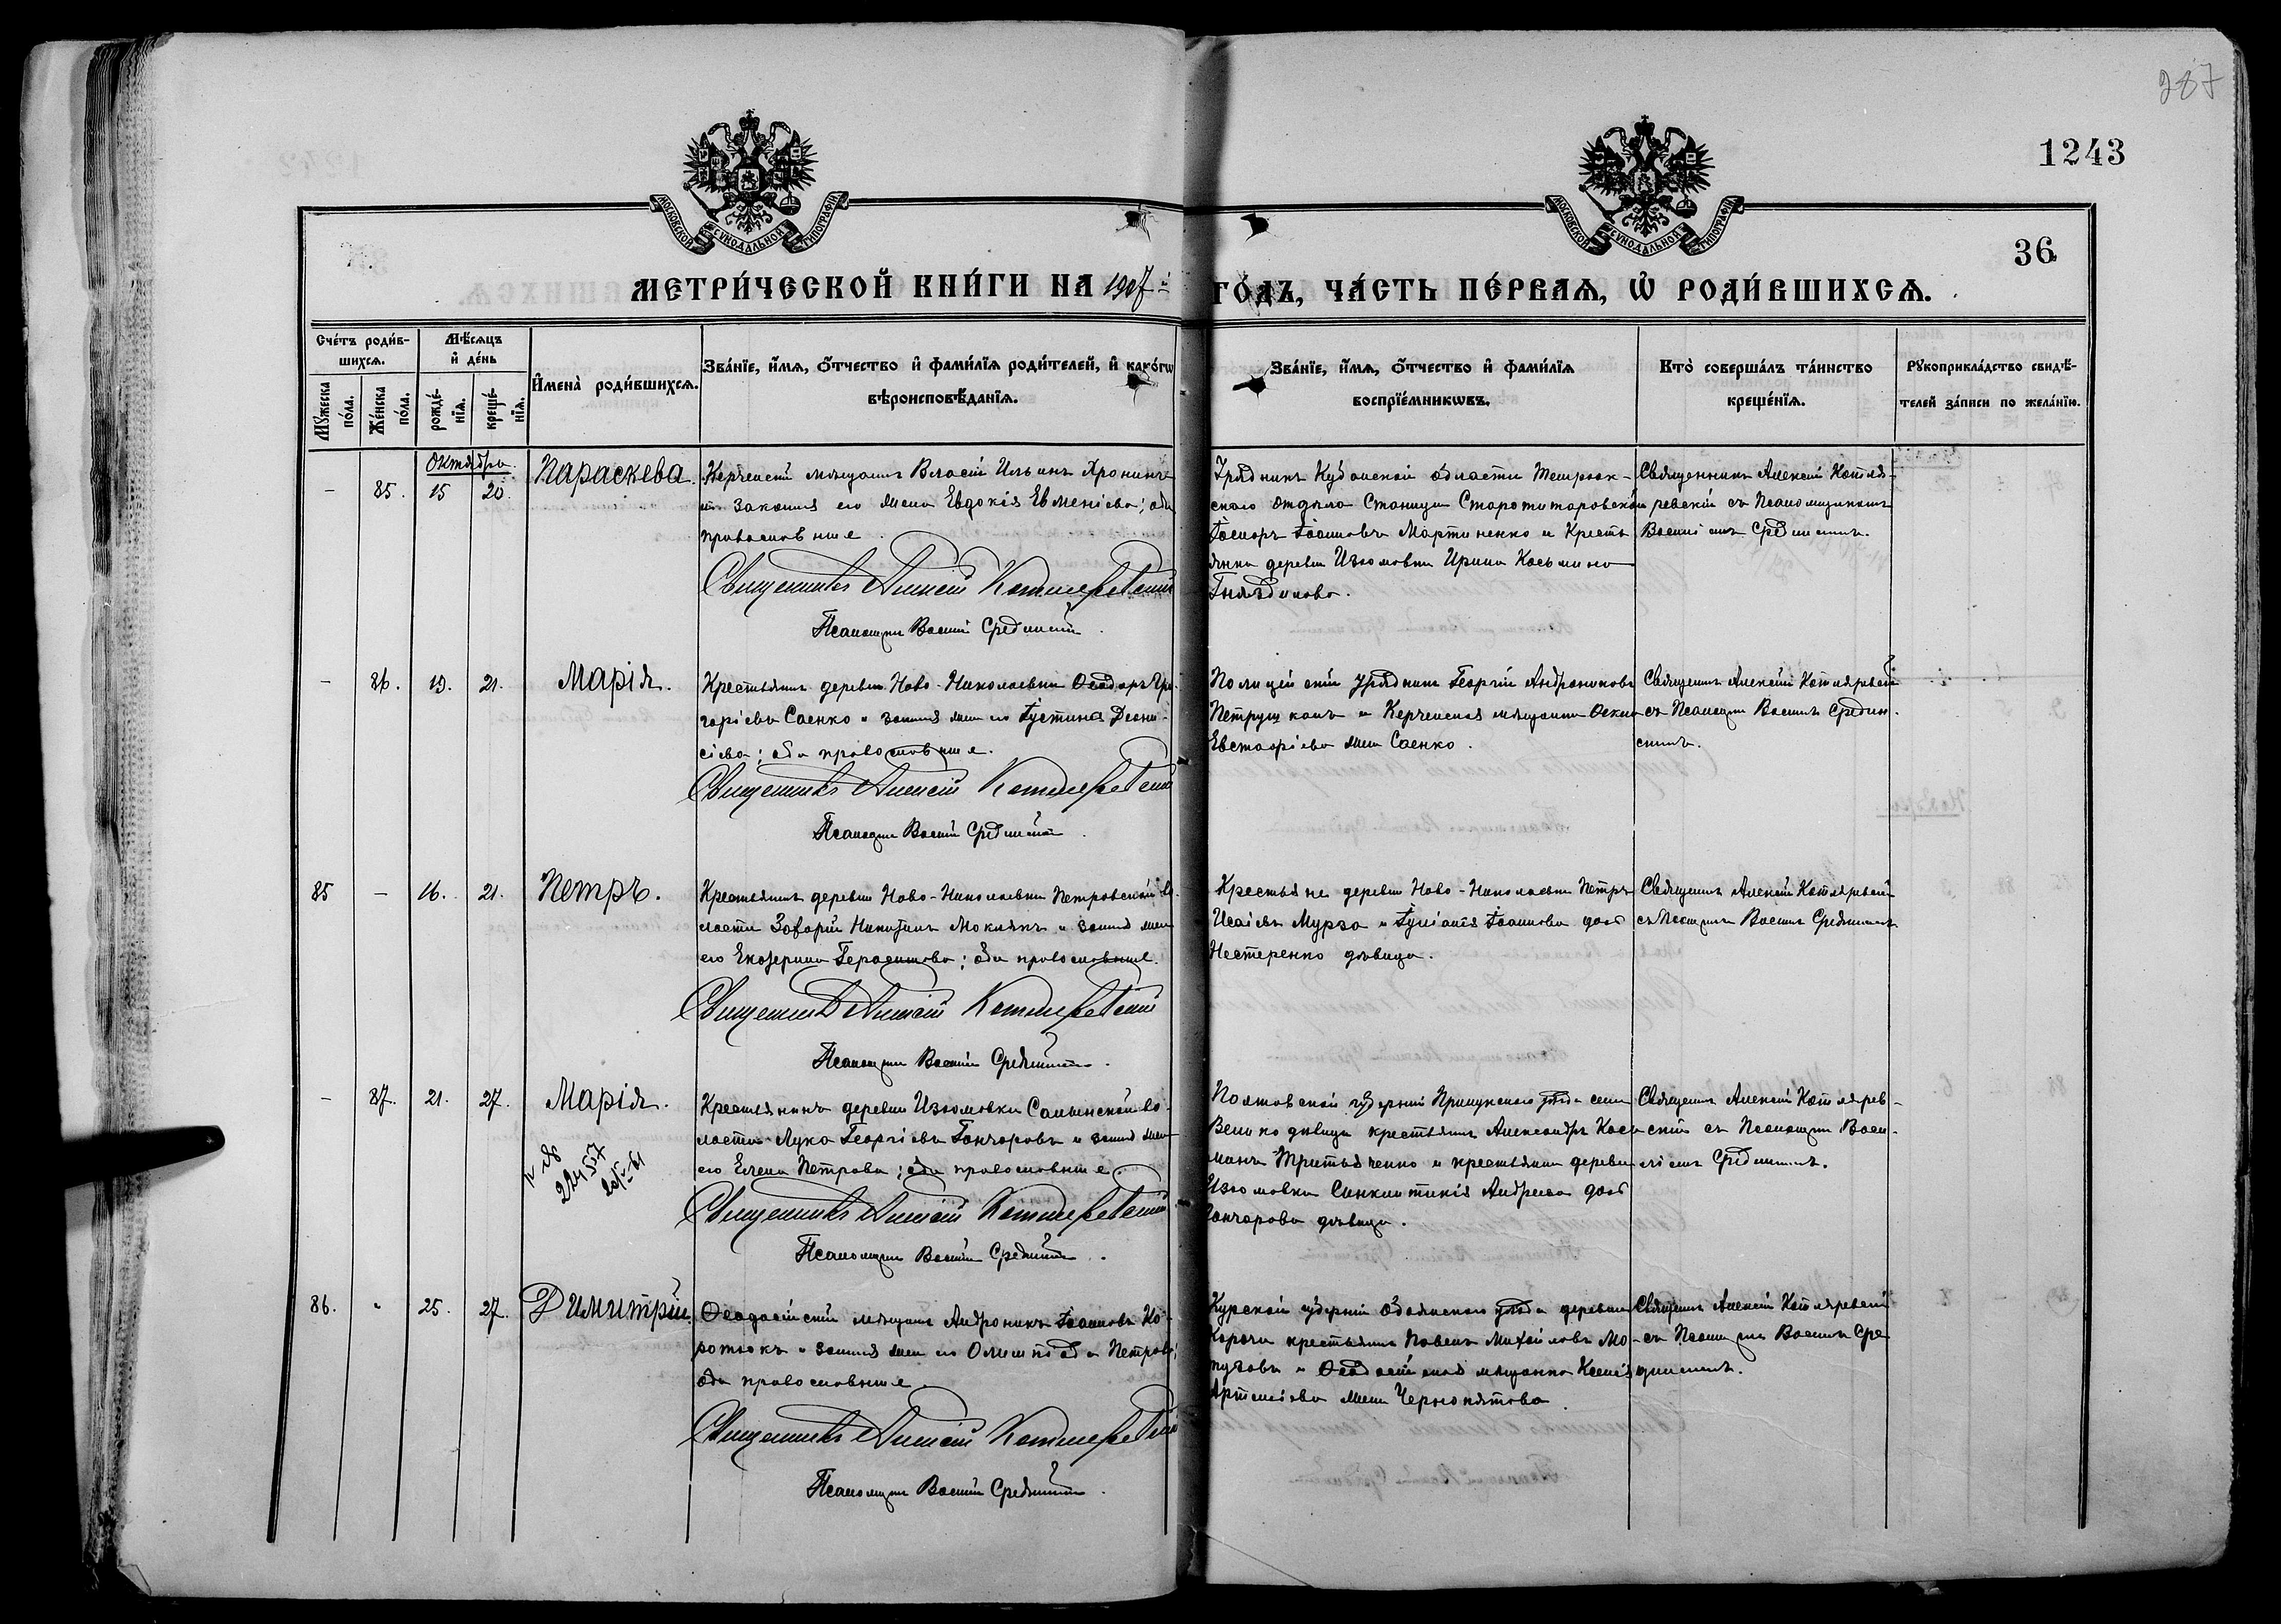 287
1243
36
МОСКОВСКОЙ СѴНОДАЛЬНОЙ ТИПОГРАФІИ
МОСКОВСКОЙ СѴНОДАЛЬНОЙ ТИПОГРАФІИ
МЕТРИ́ЧЕСКОЙ КНИ́ГИ НА 1907-й ГО́ДЪ, ЧА́СТЬ ПЕ́РВАѦ, Ѡ҆ РОДИ́ВШИХСѦ.
Сче́тъ роди́в-
шихсѧ.
Мꙋ́жеска по́ла.
Же́нска по́ла.
Мѣ́сѧцъ
и҆ де́нь
рожде́-
нїѧ.
креще́-
нїѧ.
И҆мена̀ роди́вшихсѧ.
Зва́нїе, и҆́мѧ, ѻ҆́тчество и҆ фами́лїѧ роди́телей, и҆ како́гѡ
вѣроисповѣ́данїѧ.
Зва́нїе, и҆́мѧ, ѻ҆́тчество и҆ фами́лїѧ
воспрїе́мникѡвъ.
Кто̀ соверша́лъ та́инство
креще́нїѧ.
Рꙋкоприкла́дство свидѣ́-
телей за́писи по жела́нїю.
Октябрь.
– 85. 15 20. Параскева.
Керченскій мѣщанинъ Власій Ильинъ Хронинъ
и законная его жена Евдокія Евменіева; оба
православные.
Священникъ Алексій Котляревскій
Псаломщикъ Василій Срединскій.
Урядникъ Кубанской области Темрюк-
скаго отдѣла Станицы Старотитаровской
Іоанновъ Мартыненко и Кресть-
янка деревни Изюмовки Ирина Косьмина
Гнѣздилова.
Священникъ Алексій Котля-
ревскій съ Псаломщикомъ
Василіемъ Срединскимъ.
– 86. 19. 21. Марія.
Крестьянинъ деревни Ново-Николаевки Ѳеодоръ Гри-
горіевъ Саенко и законная жена его Іустина Діони-
сіева; оба православные.
Священникъ Алексій Котляревскій
Псаломщикъ Василій Срединскій.
Полицейскій урядникъ Георгій Андрониковъ
Петрущакъ и Керченская мѣщанка Ѳекла
Евстафіева жена Саенко.
Священникъ Алексій Котляревскій
съ Псаломщик. Василіемъ Средин-
скимъ.
85 – 16. 21. Петръ.
Крестьянинъ деревни Ново-Николаевки Петровской во-
лости Захарій Никитинъ Моклякъ и законная жена
его Екатерина Герасимова; оба православные.
Священникъ Алексій Котляревскій
Псаломщикъ Василій Срединскій.
Крестьяне деревни Ново-Николаевки Петръ
Исаіевъ Мурза и Іуліанія Іоаннова дочь
Нестеренко дѣвица.
Священникъ Алексій Котляревскій
съ Псаломщик. Василіемъ Срединскимъ
– 87. 21. 27. Марія.
22457
Крестьянинъ деревни Изюмовки Салынской во-
лости Лука Георгіевъ Гончаровъ и законная жена
его Елена Петрова; оба православные.
Священникъ Алексій Котляревскій
Псаломщикъ Василій Срединскій.
Полтавской губерніи Прилукскаго уѣзда села
крестьянинъ Александръ Кось-
минъ Третьяченко и крестьянка деревни
Изюмовки Синклитикія Андреева дочь
Гончарова дѣвица.
Священникъ Алексій Котлярев-
скій съ Псаломщик. Васи-
ліемъ Срединскимъ.
86. - 25. 27. Димитрій
Ѳеодосійскій мѣщанинъ Андроникъ Іоанновъ Ко-
ротюкъ и законная жена его Олимпіада Петрова;
оба православные.
Священникъ Алексій Котляревскій
Псаломщикъ Василій Срединскій.
Курской губерніи Обоянскаго уѣзда деревни
Карочи крестьянинъ Павелъ Михайловъ
и Ѳеодосійская мѣщанка Ксенія
Артеміева жена Чернопятова.
Священникъ Алексій Котляревскій
съ Псаломщик. Василіемъ Сре-
динскимъ.